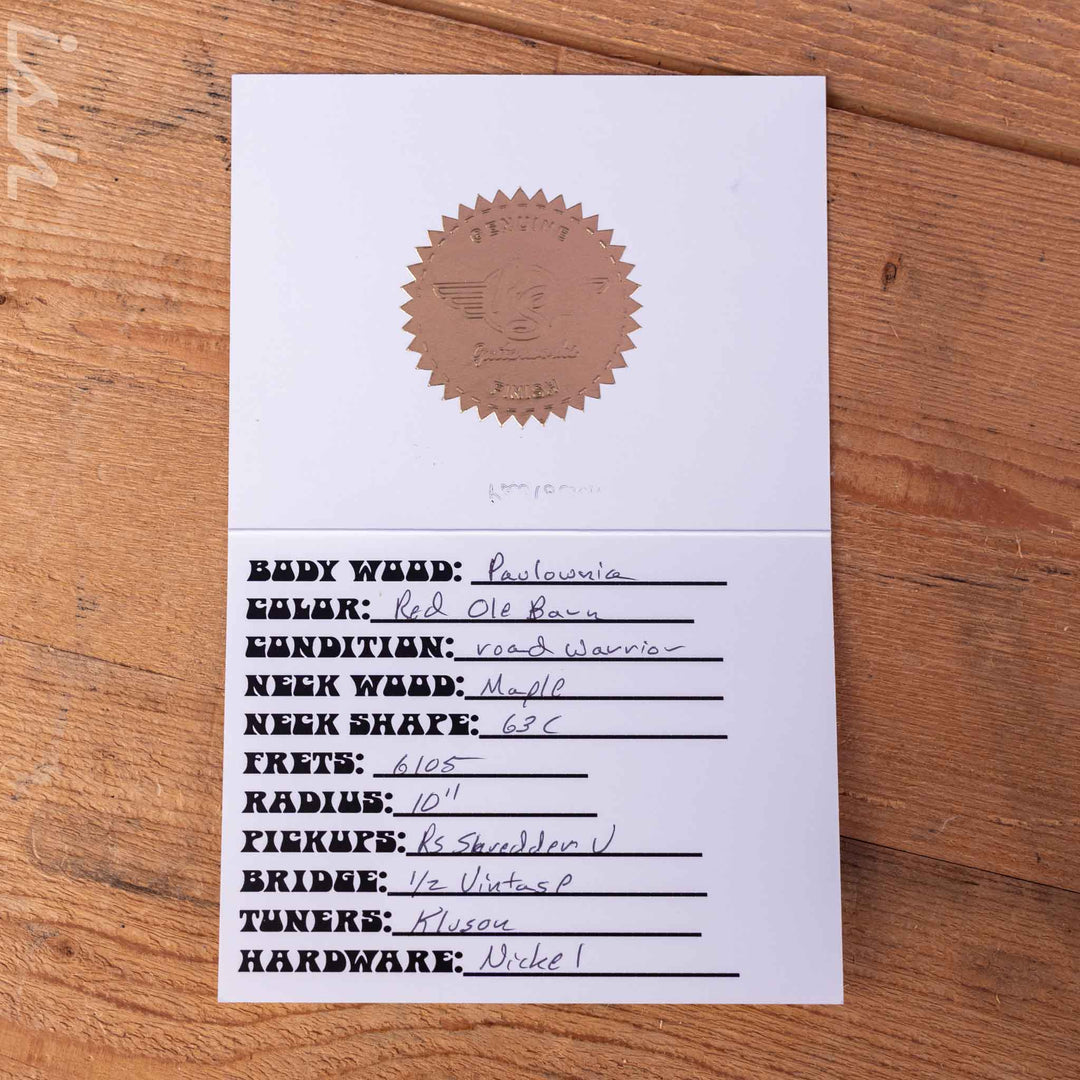 ish
GENUINE
Guitarworks
FINISH
BODY WOOD: Paulownia
COLOR: Red Ole Barn
CONDITION: road warrior
NECK WOOD: Maple
NECK SHAPE: 63 C
FRETS: 6105
RADIUS: 10"
PICKUPS: Rs Shredder V
BRIDGE: 1/2 Vintage
TUNERS: Kluson
HARDWARE: Nickel